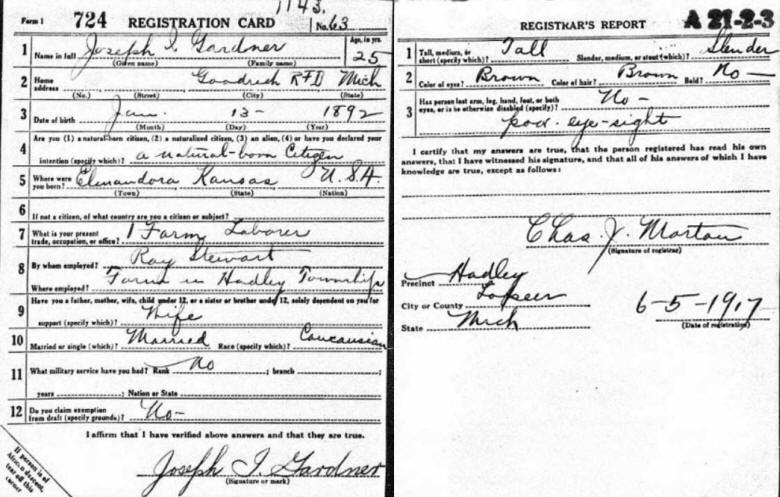 1143.
Form 1 724 REGISTRATION CARD No. 63
1 Name in full Joseph I. Gardner Age, in yrs. 25
(Given name) (Family name)
2 Home address Goodrich RFD Mich
(No.) (Street) (City) (State)
3 Date of birth Jan. 13- 1892
(Month) (Day) (Year)
4 Are you (1) a natural-born citizen, (2) a naturalized citizen, (3) an alien, (4) or have you declared your
intention (specify which)? a natural-born Citizen
5 Where were you born? Kansas U.S.A.
(Town) (State) (Nation)
6 If not a citizen, of what country are you a citizen or subject?
7 What is your present trade, occupation, or office? Farm Laborer
8 By whom employed? Roy Stewart
Where employed? Farm in Hadley Township
9 Have you a father, mother, wife, child under 12, or a sister or brother under 12, solely dependent on you for
support (specify which)? Wife
10 Married or single (which)? Married Race (specify which)? Caucausian
11 What military service have you had? Rank No ; branch ;
years ; Nation or State
12 Do you claim exemption from draft (specify grounds)? No-
I affirm that I have verified above answers and that they are true.
Joseph I. Gardner
(Signature or mark)
If person is of
African descent,
tear off this
corner
REGISTRAR'S REPORT A 21-2-3
1 Tall, medium, or short (specify which)? Tall Slender, medium, or stout (which)? Slender
2 Color of eyes? Brown Color of hair? Brown Bald? No-
3 Has person lost arm, leg, hand, foot, or both
eyes, or is he otherwise disabled (specify)? No-
poor eye-sight
I certify that my answers are true, that the person registered has read his own
answers, that I have witnessed his signature, and that all of his answers of which I have
knowledge are true, except as follows:
Chas. J. Morton
(Signature of registrar)
Precinct Hadley
City or County Lapeer
State Mich
6-5-1917
(Date of registration)